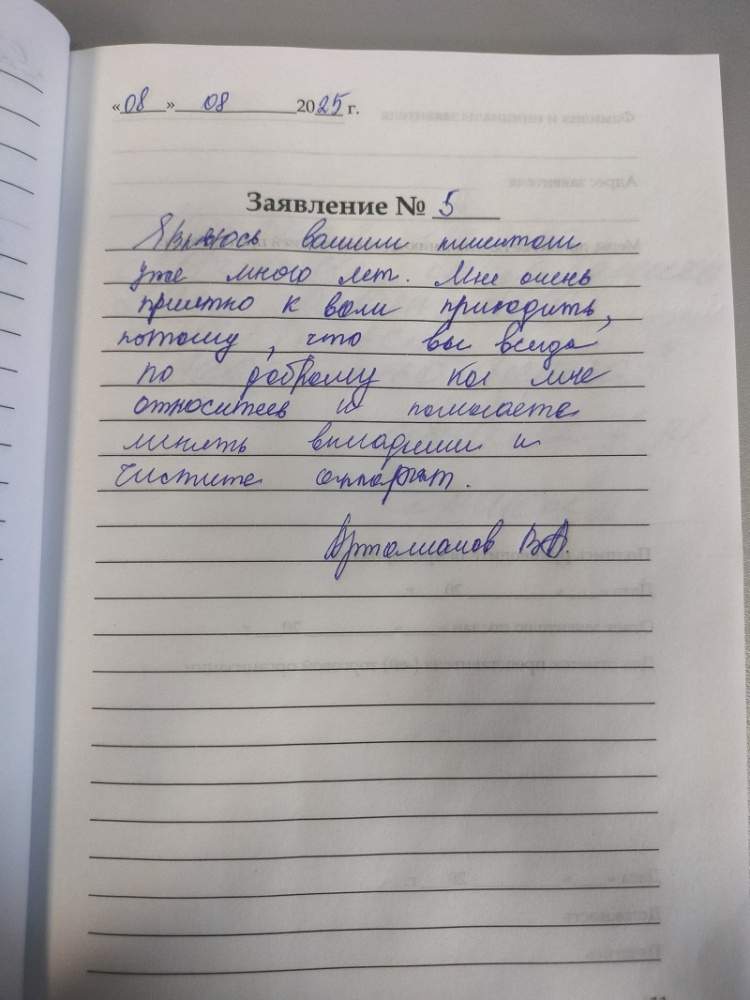 «08» 08 2025 г.
Заявление № 5
Являюсь вашим клиентом
уже много лет. Мне очень
приятно к вам приходить,
потому, что вы всегда
по доброму ко мне
относитесь и помогаете
менять вкладыши и
чистите аппарат.
В.В.